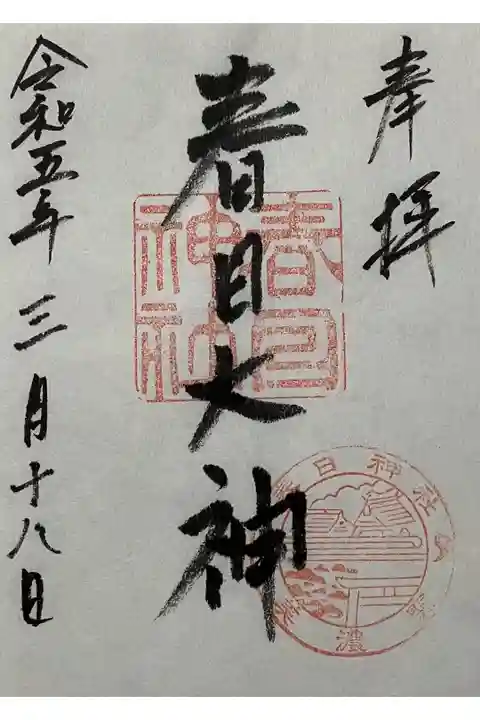 奉拝
春日大神
春日
神社
日神社
濃
令和五年三月十八日